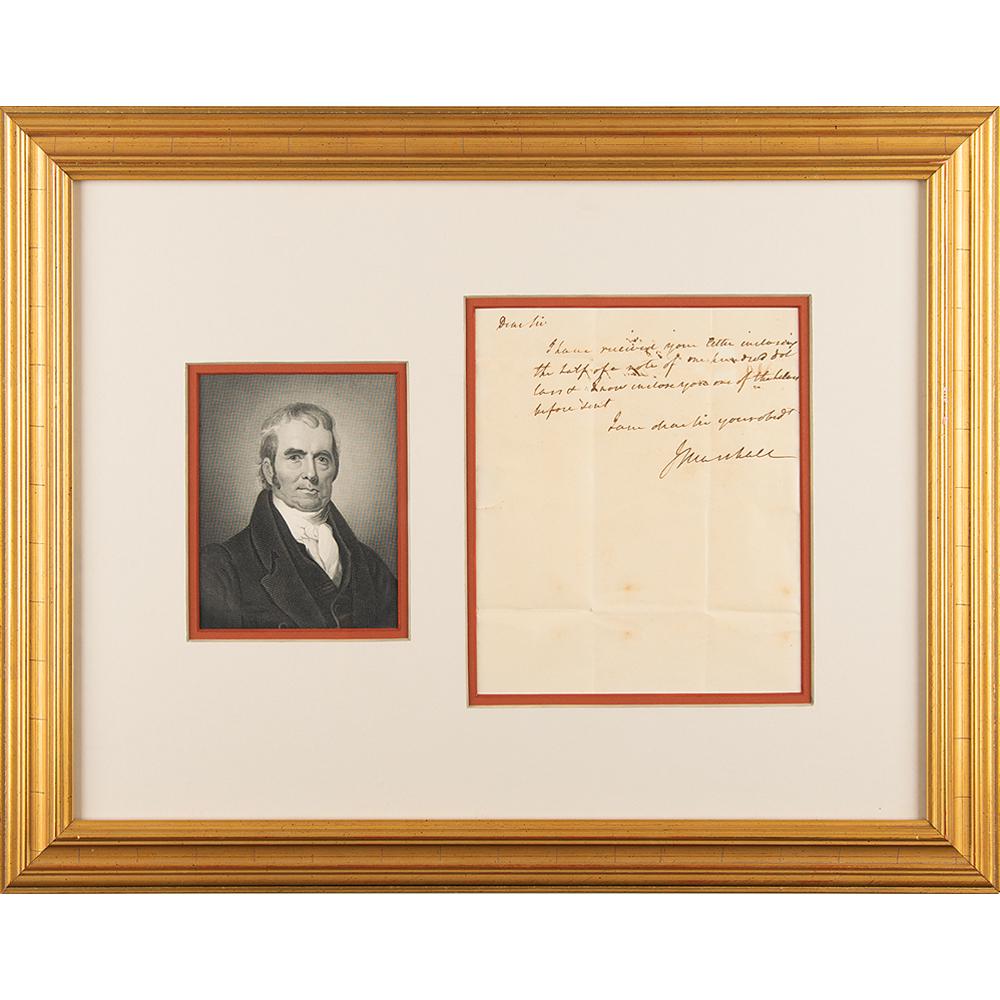 Dear Sir
I have received your letter inclosing
the half of a note of one hundred dol
lars & now inclose you one of the
before sent
I am dear Sir your obedt
J Marshall